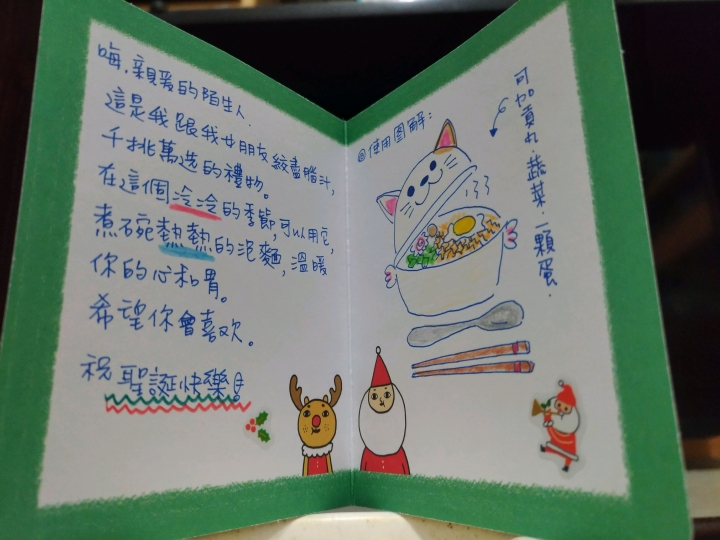 嗨,親愛的陌生人.
這是我跟我女朋友絞盡腦汁,
千挑萬選的禮物。
在這個冷冷的季節,可以用它,
煮碗熱熱的泡麵,溫暖
你的心和胃。
希望你會喜歡。
祝聖誕快樂!
◎使用图解:
可加貢丸.蔬菜.一顆蛋.